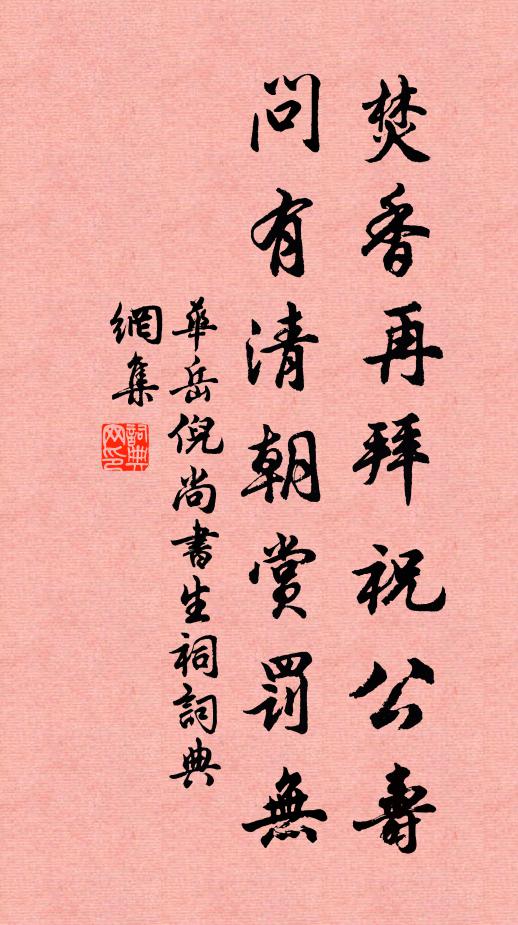 焚香再拜祝公壽
問有清朝賞罰無
華岳倪尚書生祠詞典
網集
詞典
网印